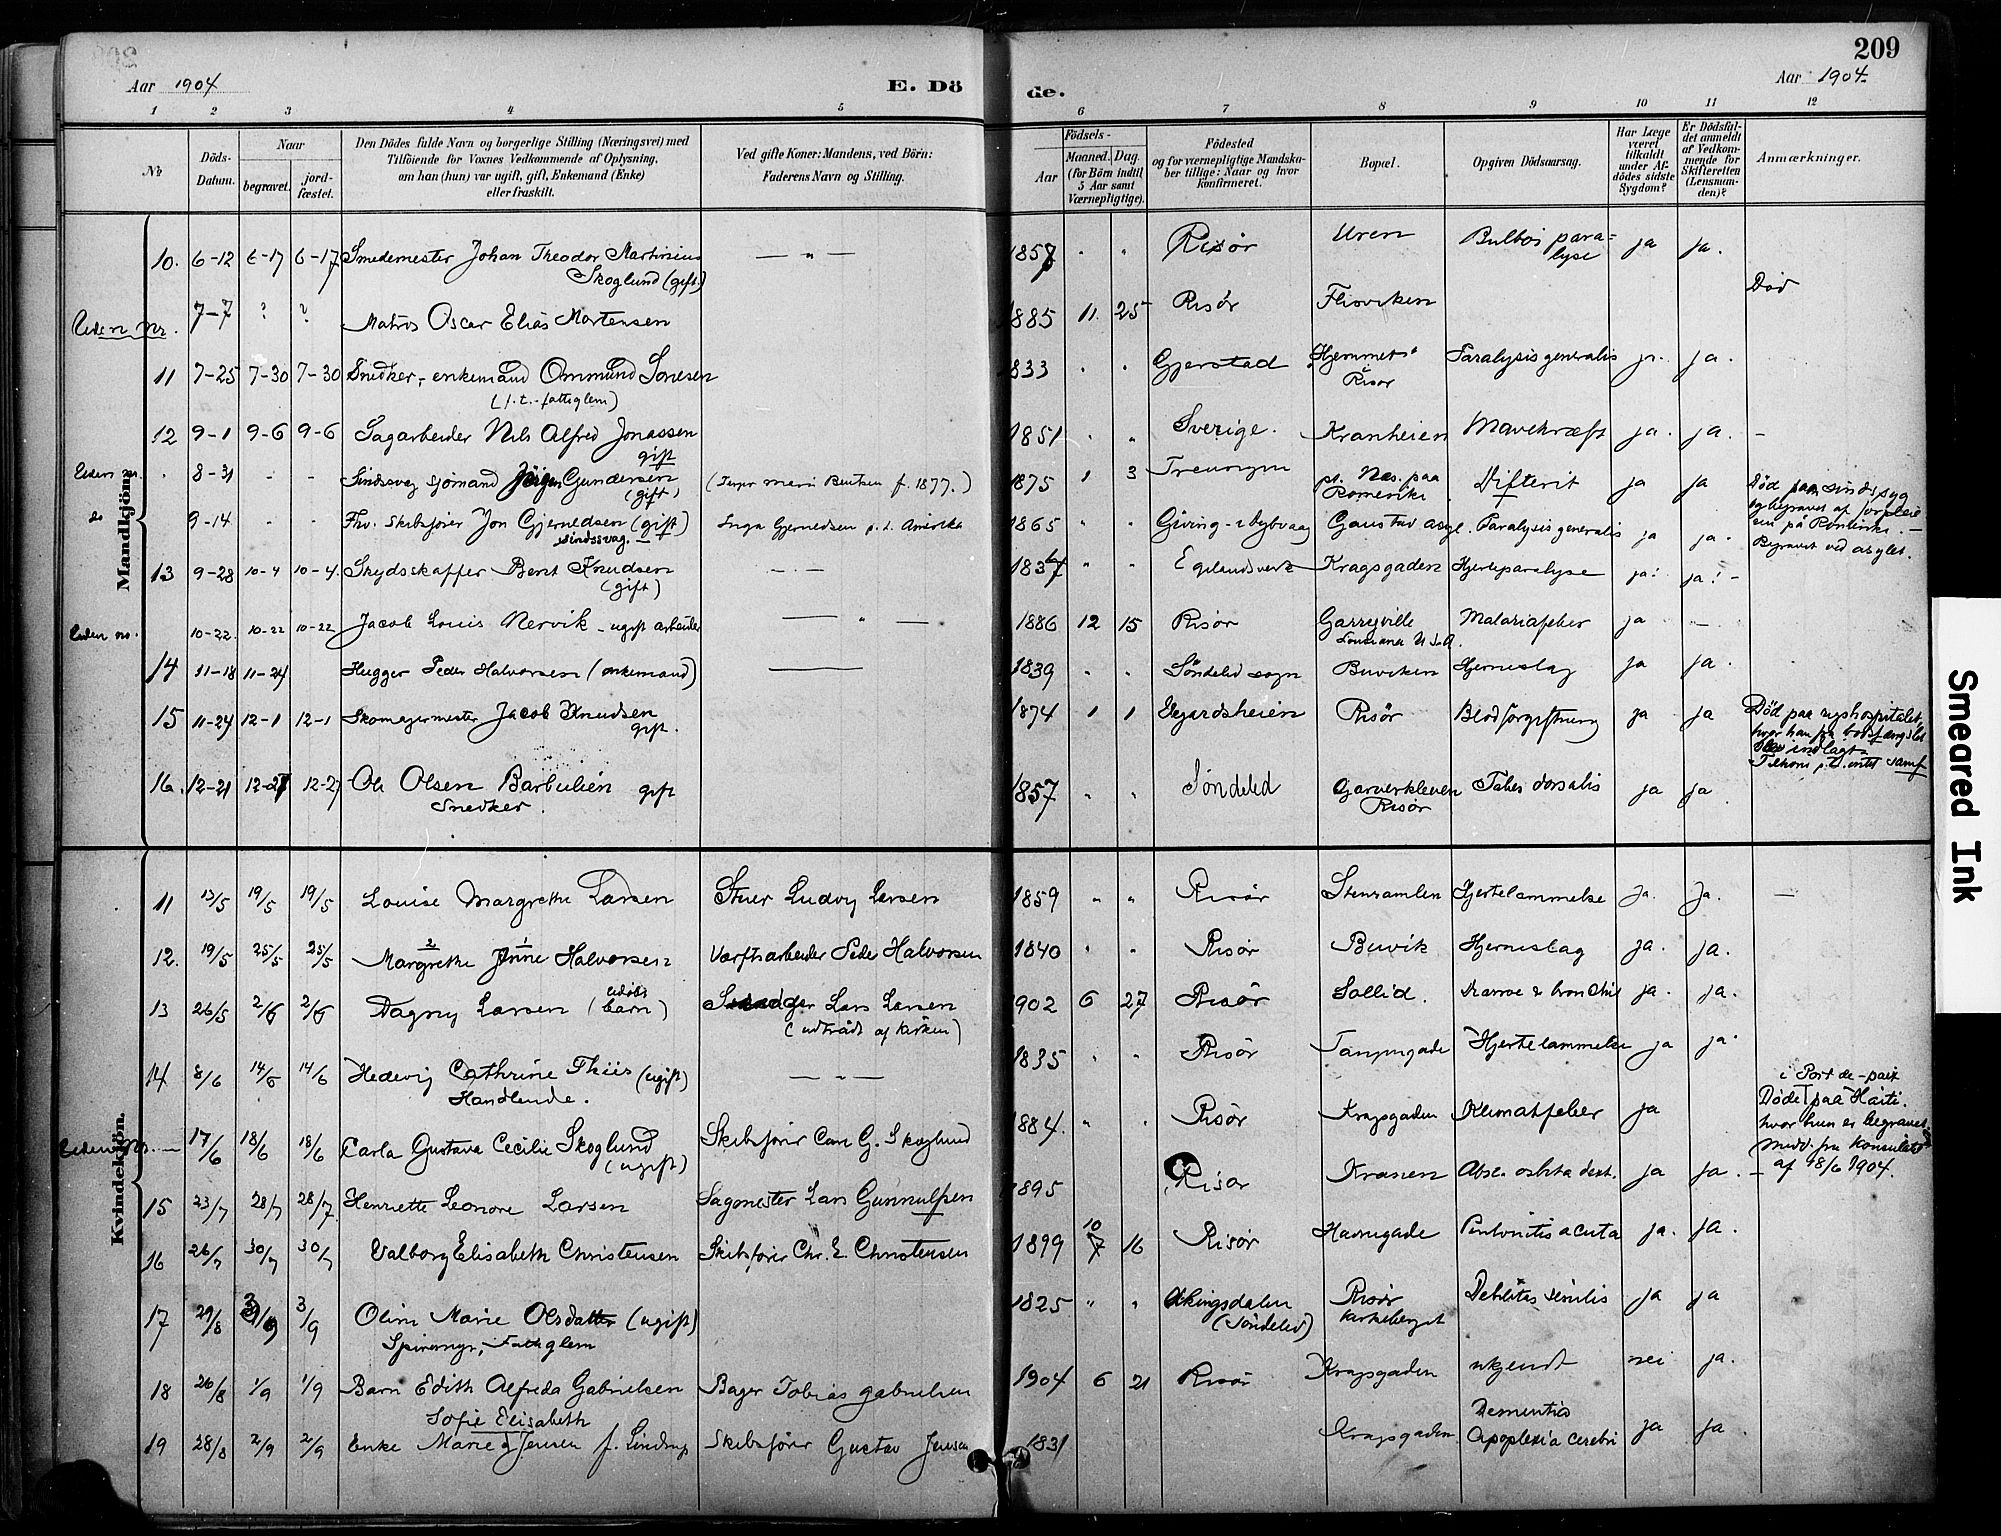 209
Aar 1904
E. Dö
de.
Aar 1904.
1 2 3 4 5 6 7 8 9 10 11 12
No
Döds-Datum.
Naar
begravet.
jord-fæstet.
Den Dödes fulde Navn og borgerlige Stilling (Næringsvei) med
Tilföiende for Voxnes Vedkommende af Oplysning,
om han (hun) var ugift, gift, Enkemand (Enke)
eller fraskilt.
Ved gifte Koner: Mandens, ved Börn:
Faderens Navn og Stilling.
Födsels-
Aar
Maaned. Dag
(for Börn indtil
5 Aar samt
Værnepligtige).
Födested
og for værnepligtige Mandska-
ber tillige: Naar og hvor
konfirmeret.
Bopæl.
Opgiven Dödsaarsag.
Har Læge
været
tilkaldt
under Af-
dödes sidste
Sygdom?
Er Dödsfal-
det anmeldt
af Vedkom-
mende for
Skifteretten
(Lensman-
den)?
Anmærkninger.
Mandkjön.
10. 6-12 6-17 6-17 Smedemester Johan Theodor Martinius — „ — 1857 „ „ Risør Uren Bulbær para= ja ja.
Skoglund (gift.) lyse
Uden Nr. 7-7 ? ? Matros Oscar Elias Mortensen 1885 11. 25 Risør Flisviken Død
11 7-25 7-30 7-30 Snedker-enkemand Ommund Tonesen 1833 „ „ Gjerstad Hjemmet Paralysis generalis ja. ja.
(f.t. fattiglem) Risør
12 9-1 9-6 9-6 Sagarbeider Nils Alfred Jonassen 1851 „ „ Sverige. Kranheien Mavekræft ja. ja. -
gift
Uden nr. 8-31 - - Sindssvag sjømand Jørgen Gundersen 1875 1 3 pt. Næs. paa Difterit ja ja Død paa sindssyg
(gift) Romerike
do 9-14 - - Fhv. skibsfører Jon Gjernedsen (gift) Inga Gjernedsen p.t. Amerika 1865 „ „ Gaustad asyl. Paralysis generalis ja ja.
sindssvag. Begravet ved asylet.
13 9-28 10-4 10-4. Skydsskaffer Bernt Knudsen 1837 „ „ Egelandsverk Kragsgaden Hjerteparalyse ja. ja. -
(gift)
Uden no. 10-22. 10-22 10-22 Jacob Louis Nervik - ugift arbeider — „ — 1886 12 15 Risør Garryville Malariafeber ja —
Louisiana U.S.A.
14 11-18 11-24 Hugger Peder Halvorsen (enkemand) — 1839 „ „ Søndeled sogn Buviken Hjerneslag ja ja.
15 11-24 12-1 12-1 Skomagermester Jacob Knudsen 1874 1 1 Vegardsheien Risør Blodforgiftning ja ja Død paa rigshospitalet,
gift. hvor han fra bodsfængslet
blev indlagt
16. 12-21 12-27 12-27 Ole Olsen Barbulien gift 1857 „ „ Søndeled Garverkleven Tabes dorsalis ja ja
Snedker. Risør
Kvindekjön.
11 13/5 19/5 19/5 Louise Margrethe Larsen Stuer Ludvig Larsen 1859 „ „ Risør Stensamlen Hjertelammelse Ja. Ja. —
12. 19/5 25/5 25/5 Margrethe Anne Halvorsen Værftsarbeider Peder Halvorsen 1840 „ „ Risør Buvik Hjerneslag ja. ja.
13 26/5 2/6 2/6 Dagny Larsen (udøbt barn) Lars Larsen 1902 6 27 Risør Sollid. ja. ja.
(udtraadt af kirken)
14 8/6 14/6 14/6 Hedevig Cathrine Thiis (ugift) — „ — 1835 „ „ Risør Tangengade Hjertelammelse ja ja.
Handlende.
Uden Nr. — 17/6 18/6 18/6 Carla Gustava Cecilie Skoglund Skibsfører Carl G. Skoglund 1884. „ „ Risør Kragsgaden Klimatfeber ja i Port de-paix
(ugift) Døde paa Haiti.
hvor hun er begravet.
Medd. fra konsulatet
af 18/6 1904.
15 23/7 28/7 28/7. Henriette Leonore Larsen Sagmester Lars Gunnulfsen 1895 Risør Kranen ja ja.
16 26/7 30/7 30/7 Valborg Elisabeth Christensen Skibsfører Chr. E. Christensen 1899 10 7 16 Risør Havnegade Peritonitis acuta ja. ja.
17 29/8 3/9 3/9 Oline Marie Olsdatter (ugift) 1825 „ „ Risør Debilitas senilis ja ja
Fattiglem (Søndeled) kirkeberget
18 26/8 1/9 1/9 Barn Edith Alfreda Gabrielsen Bager Tobias Gabrielsen 1904 6 21 Risør Kragsgaden ukjendt nei ja.
19 28/8 2/9 2/9 Sofie Elisabeth Dementia
Enke Marie Jensen f. Lindrup Skibsfører Gustav Jensen 1831 Kragsgaden. Apoplexia cerebri ja ja
Smeared Ink